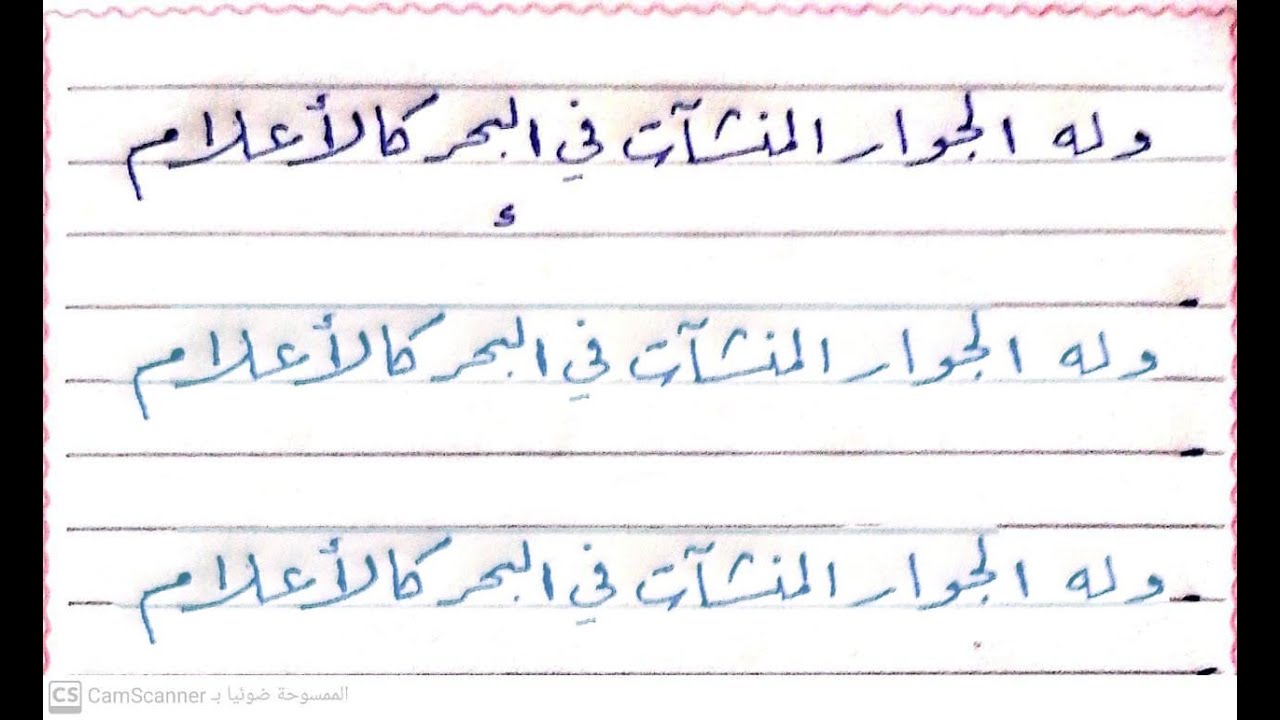 وله الجوار المنشآت في البحر كالأعلام
ء
وله الجوار المنشآت في البحر كالأعلام
وله الجوار المنشآت في البحر كالأعلام
CS CamScanner الممسوحة ضوئيا بـ